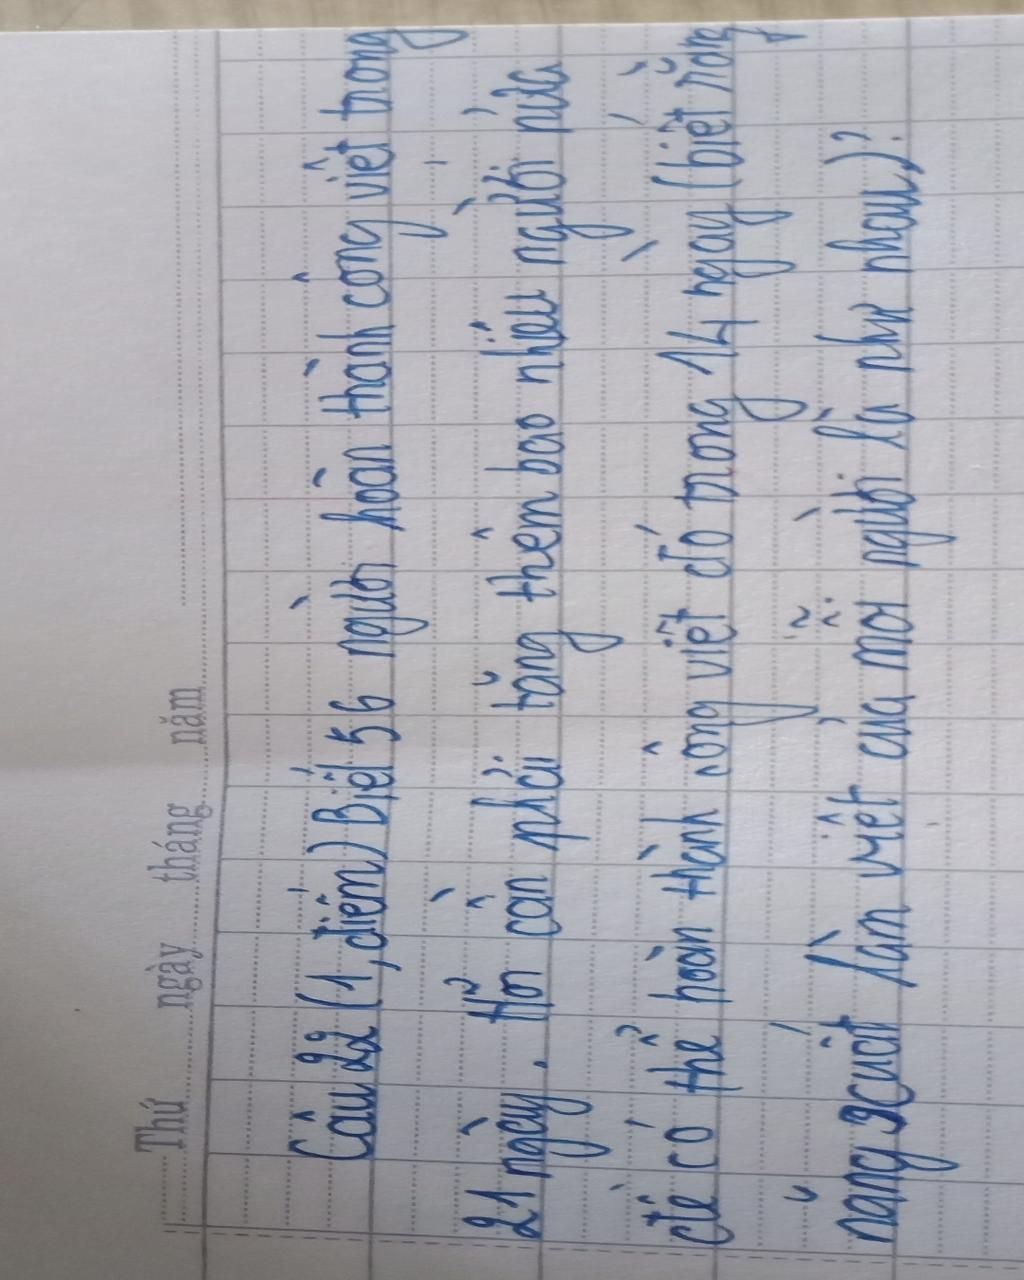 Thứ ngày tháng năm
Câu 22 (1,điểm) Biết 56 người hoàn thành công việt trong
21 ngày. Hỏi cần phải tăng thêm bao nhiêu người nữa
để có thể hoàn thành công việt đó trong 14 ngày (biết rằng
năng xcuất làm việt của mỗi người là như nhau)?